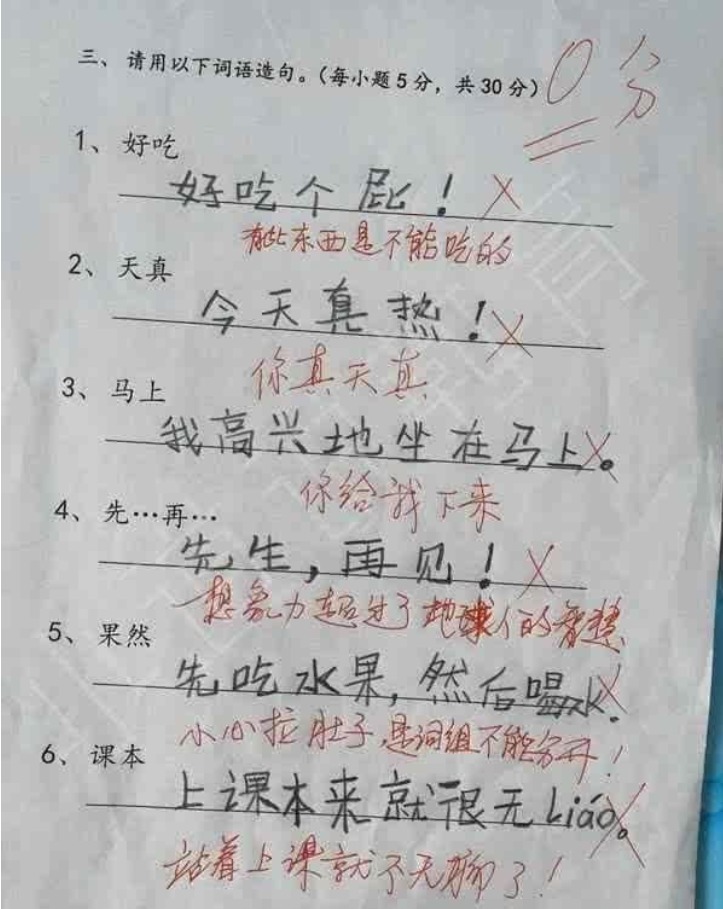 三、请用以下词语造句。（每小题5分，共30分）
0分
1、好吃
好吃个屁！
有些东西是不能吃的
2、天真
今天真热！
你真天真
3、马上
我高兴地坐在马上。
你给我下来
4、先…再…
先生，再见！
想象力超过了地球人的智慧
5、果然
先吃水果，然后喝水。
小心拉肚子，是词组不能分开！
6、课本
上课本来就很无Liáo。
站着上课就不无聊了！